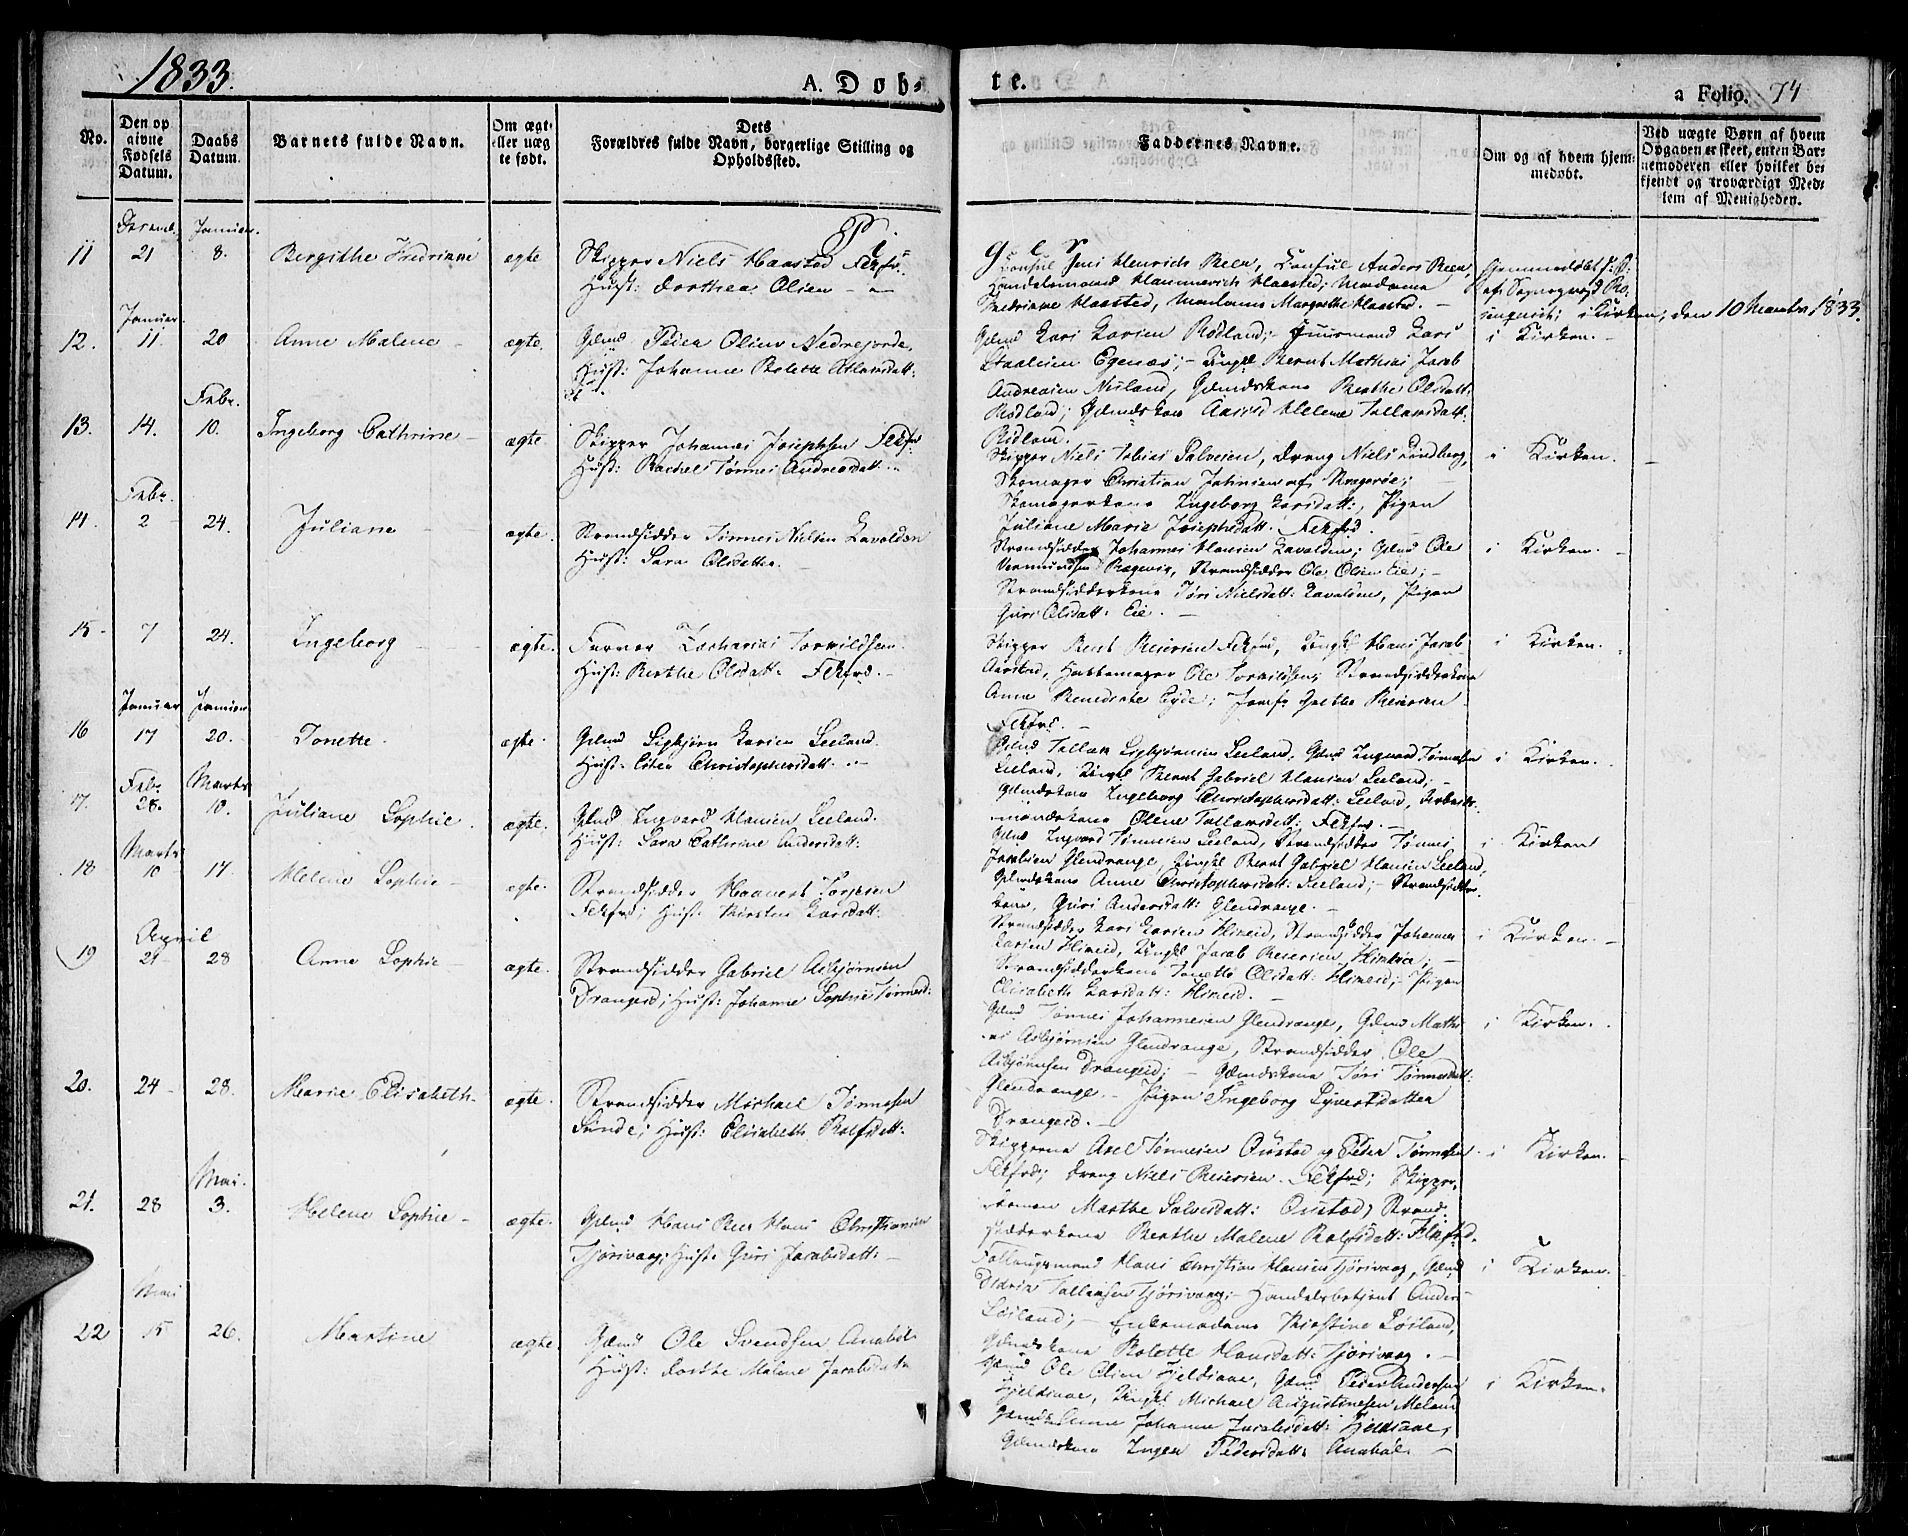 1833.
A. Døb-
te.
a Folio. 74
No.
Den op
givne
Fødsels
Datum.
Daabs
Datum.
Barnets fulde Navn.
Om ægt-
eller uæg
te født.
Dets
Forældres fulde Navn, borgerlige Stilling og
Opholdssted.
Faddernes Navne.
Om og af hvem hjem-
medøbt.
Ved uægte Børn af hvem
Opgaven er skeet, enten Bar-
nemoderen eller hvilket be-
kjendt og troværdigt Med-
lem af Menigheden.
Decemb. Januar.
11 21 8. Bergithe Fredrianné ægte
Skipper Niels Haasted Flekfr:
Hust: Dorthea Olsen
Consul Jens Henrich Beer, Consul Anders Beer,
Handelsmand Haasted, Madame
Fredrianne Haasted, Madame Margrethe Haasted.
Hjemmedøbt
i Kirken, den 10 Martz 1833.
Januar
12. 11. 20 Anne Malene ægte.
Gdmd Peder Olsen Nedrejorde,
Hust: Johanne Bolette
Gdmd Lars Larsen Rødland;
Egenæs; Ungkl Bernt Mathias Jacob
Andreasen Nuland, Gdmdskone Berthe Olsdatt:
Rødland; Gdmdskone Helene Tallaksdatt:
Rødland.
i Kirken.
Febr.
13. 14. 10. Ingeborg Cathrine ægte.
Skipper Johannes Josephsen Flekfrd
Hust: Rachel Tønnes Andreasdatt
Skipper Niels Tobias Salvesen, Dreng Niels Lindberg,
Skomager Christian Johnsen af Kragerøe;
Skomagerkone Ingeborg Larsdatt:, Pigen
Juliane Marie Josephsdatt. Flekfrd.
i Kirken.
Febr.
14. 2 24. Juliane ægte.
Strandsidder Tønnes Nielsen Lavolden
Hust: Sara Olsdatter.
Strandsidder Johannes Hansen Lavolden; Gdmd Ole
Vermundsen Ragevig, Strandsidder Ole Olsen Eie;
Strandsidderkone Tøri Nielsdatt: Lavolden, Pigen
Guri Olsdatt: Eie.
i Kirken.
15 7 24. Ingeborg ægte.
Farver Zacharias Torkildsen
Hust: Berthe Olsdatt: Flekfrd.
Skipper Bent Reiersen Flekfrd, Ungkl Hans Jacob
Aarstad, Hattemager Ole Torkildsen; Strandsidderkone
Anne Benedicte Eyde; Jomfr Grethe Reiersen
Flekfrd.
i Kirken.
Januar Januar
16 17 20. Tonette. ægte.
Gdmd Sigbjørn Larsen Leeland.
Hust: Ester Christophersdatt.
Gdmd Tallak Sigbjørnsen Leeland, Gdmd Ingvard Tønnesen
Leeland, Ungkl Bernt Gabriel Hansen Leeland;
Gdmdskone Ingeborg Christophersdatt: Leeland, Arbeids-
mandskone Olene Tallaksdatt: Flekfrd.
i Kirken.
Febr. Marts
17. 28. 10. Juliane Sophie. ægte.
Gdmd Ingvard Hansen Leeland.
Hust: Sara Cathrine Andersdatt:
Gdmd Ingvard Tønnesen Leeland, Strandsidder Tønnes
Jacobsen Glendrange, Ungkl Bernt Gabriel Hansen Leeland,
Gdmdskone Anne Christophersdatt: Leeland; Strandsidder-
kone, Guri Andersdatt: Glendrange.
i Kirken
Marts
18 10 17. Helene Sophie ægte.
Strandsidder Haavert Torjesen
Flekfrd; Hust: Kirsten Larsdatt:
Strandsidder Lars Larsen Himeid, Strandsidder Johannes
Larsen Himeid, Ungkl Jacob Reiersen
Strandsidderkone Tonette Olsdatt: Himeid; Pigen
Elisabeth Larsdatt: Himeid.
i Kirken.
April
19 21 28 Anne Sophie ægte.
Strandsidder Gabriel Asbjørnsen
Drangeid; Hust: Johanne Sophie Tønnesd:
Gdmd Tønnes Johannesen Glendrange, Gdmd Mathi-
as Asbjørnsen Glendrange, Strandsidder Ole
Asbjørnsen Drangeid; Gdmdskone Tøri Tønnesdatt:
Glendrange. Pigen Ingeborg Syvertsdatter
Drangeid.
i Kirken.
20. 24 28. Marie Elisabeth ægte.
Strandsidder Michael Tønnesen
Sunde; Hust: Elisabeth Rolfsdatt:
Skipperne Axel Tønnesen Oustad og Peder Tønnesen
Flekfrd; Dreng Niels Reiersen Flekfrd; Skipper-
konen Marthe Salvesdatt: Oustad, Strand-
sidderkone Berthe Malene Rolfsdatt: Flekfrd.
i Kirken.
Mai.
21. 28 3. Helene Sophie ægte.
Gdmd Hans Beer Hans Christiansen
Tjørsvaag; Hust: Guri Jacobsdatt:
Hans Christian Hansen Tjørsvaag, Gdmd
Didrik Tallaksen Tjørsvaag; Handelsbetjent Anders
Løiland; Enkemadame Kirstine Løiland,
Gdmdskone Bolette Hansdatt: Tjørsvaag.
i Kirken.
Mai
22 15 26. Martine ægte.
Gdmd Ole Svendsen Anabøl
Hust: Dorthe Malene Jacobsdatt
Gdmd Ole Olsen Fjeldsaae, Gdmd Peder Andersen
Fjeldsaae, Ungkl Michael Augustinusen Meland
Gdmdskone Johanne Jacobsdatt: Fjeldsaae,
Gdmdskone Inger Pedersdatt: Anabøl.
i Kirken.